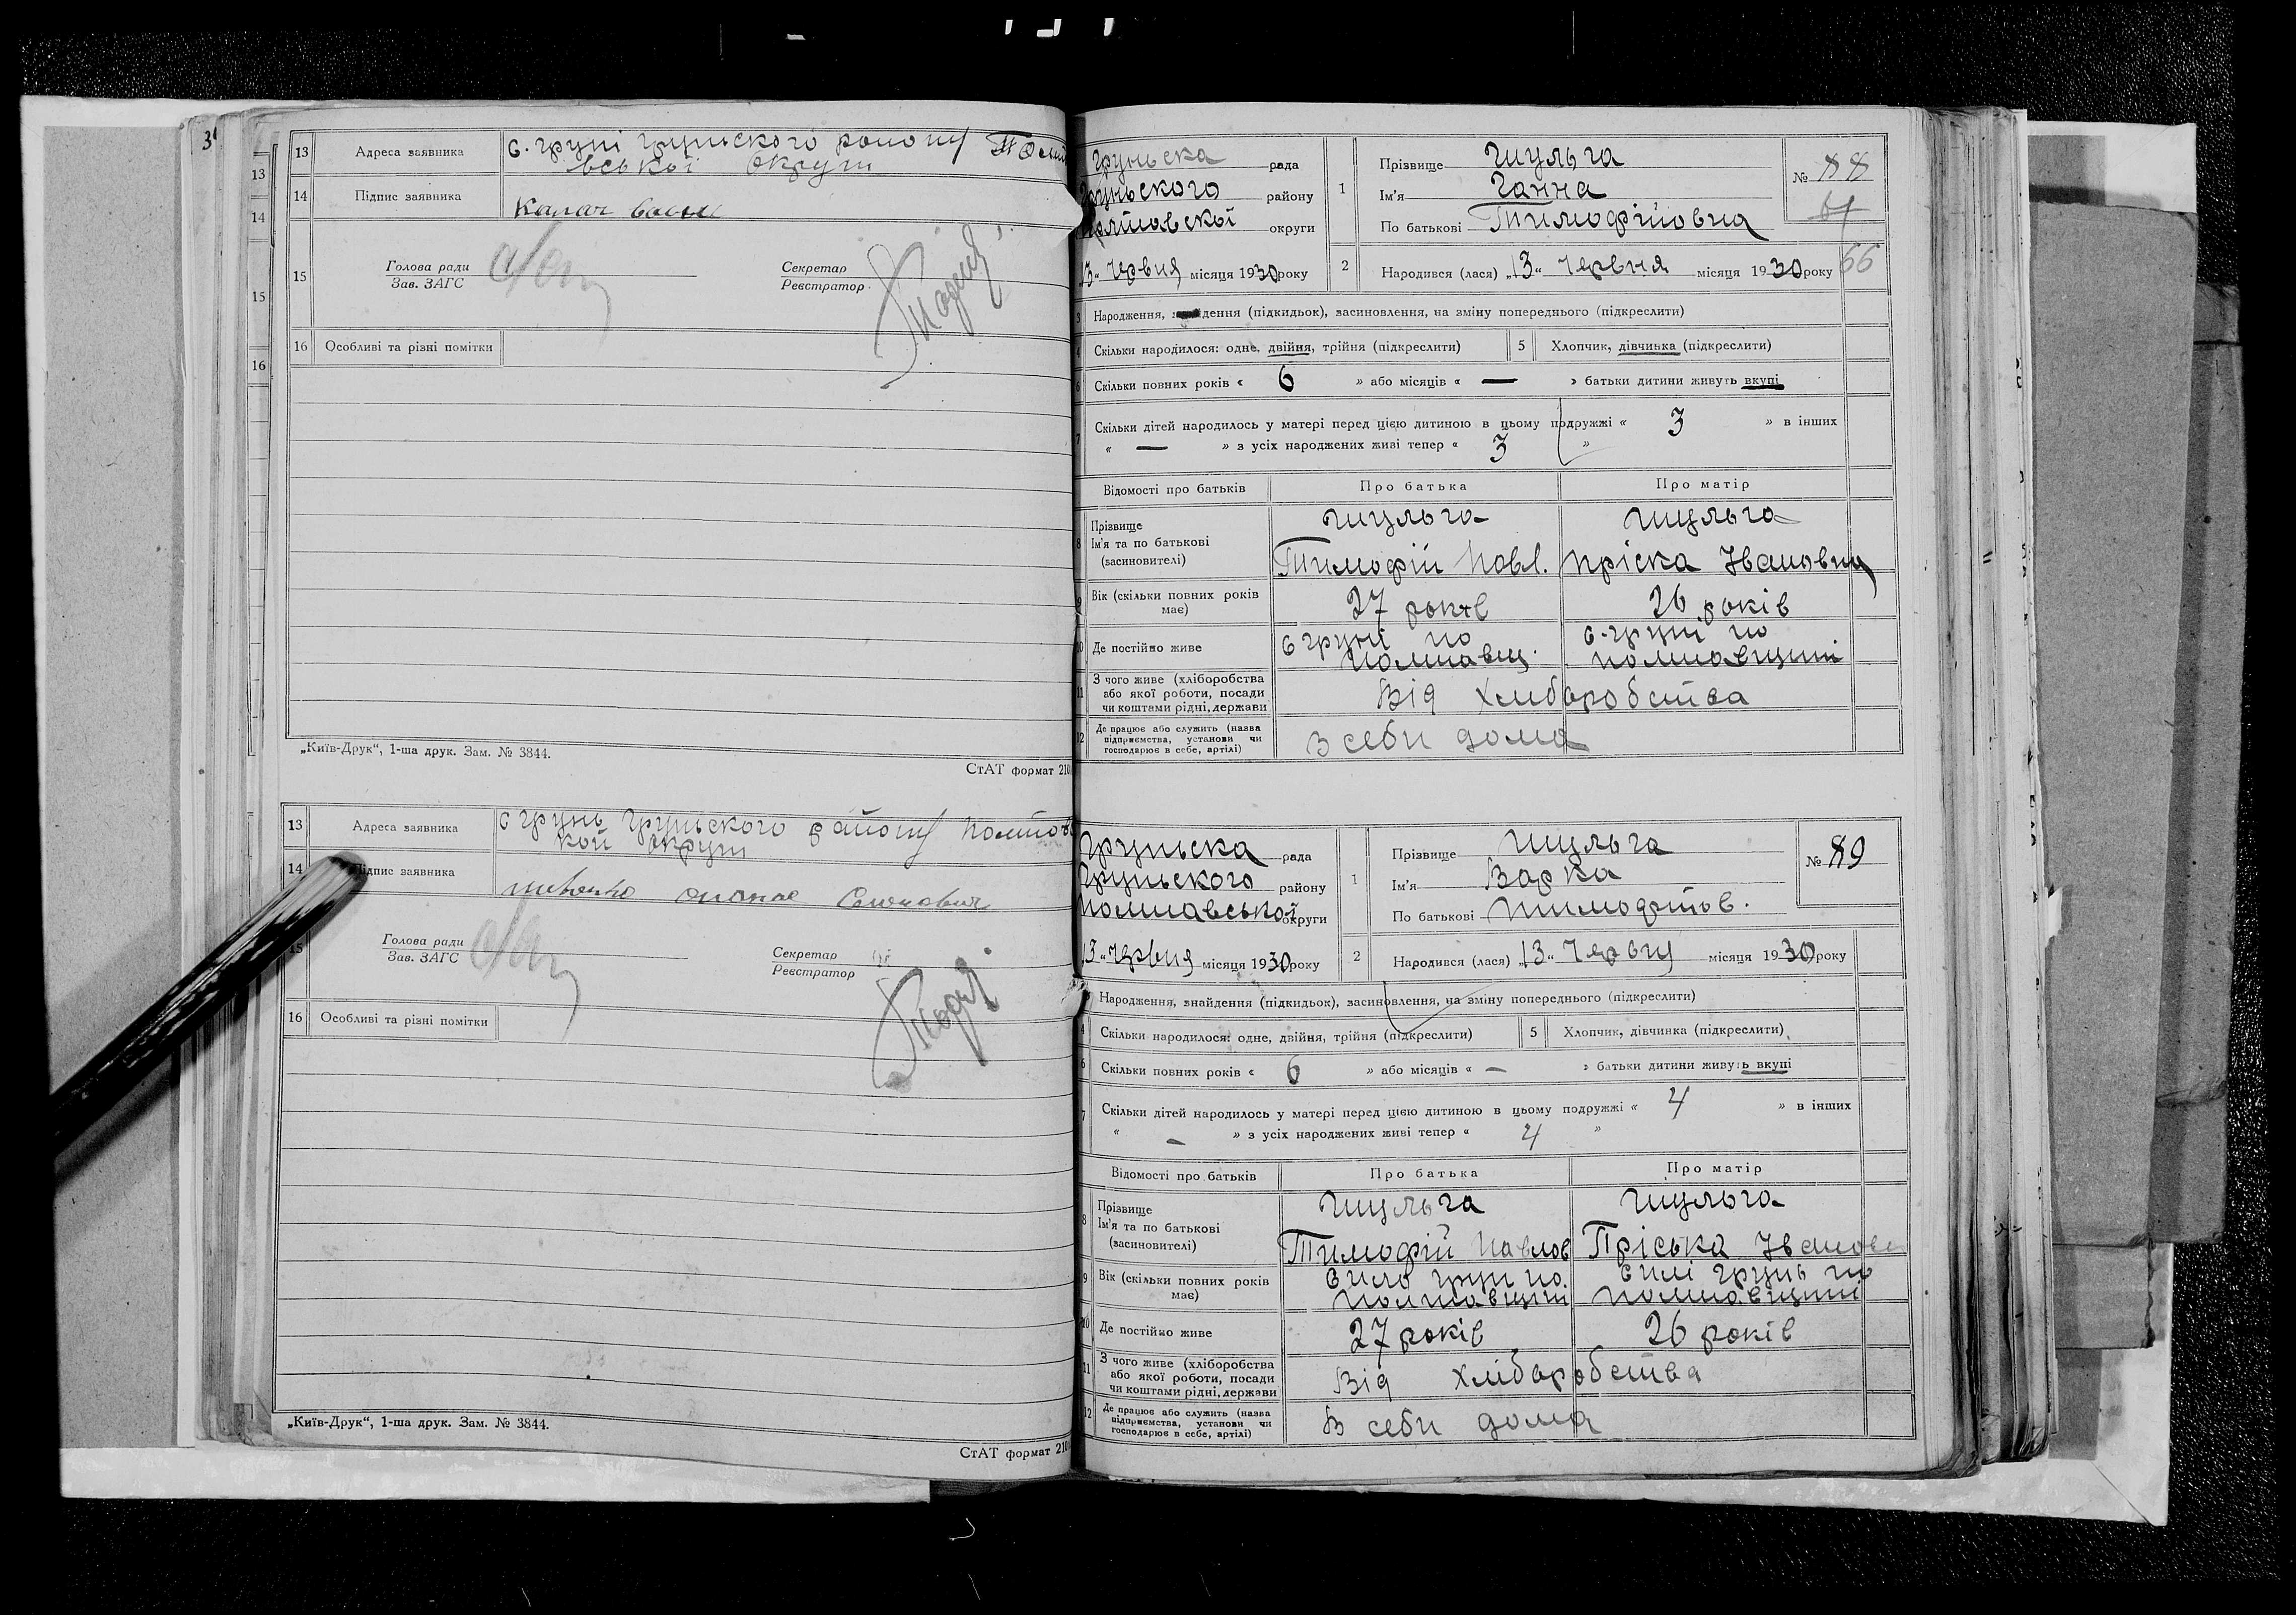 31
13
14
15
16
13 Адреса заявника с. груні груньского району Полта
вської округи
14 Підпис заявника Калач
15 Голова ради
Зав. ЗАГС
Секретар
Реєстратор
16 Особливі та різні помітки
„Київ-Друк“, 1-ша друк. Зам. № 3844.
СтАТ формат 210
13 Адреса заявника с грунь груньского району полтавс
кой округи
14 Підпис заявника
15 Голова ради
Зав. ЗАГС
Секретар
Реєстратор
16 Особливі та різні помітки
„Київ-Друк“, 1-ша друк. Зам. № 3844.
СтАТ формат 210
Груньска рада
Груньского району
Полтавскої округи
„13“ червня місяця 1930 року
1 Прізвище Шульга
Ім'я Ганна
По батькові Тимофійовна
№ 88
66
2 Народився (лася) „13“ Червня місяця 1930 року
3 Народження, знайдення (підкидьок), засиновлення, на зміну попереднього (підкреслити)
4 Скільки народилося: одне, двійня, трійня (підкреслити) 5 Хлопчик, дівчинка (підкреслити)
6 Скільки повних років « 6 » або місяців « — » батьки дитини живуть вкупі
7 Скільки дітей народилось у матері перед цією дитиною в цьому подружжі « 3 » в інших
« — » з усіх народжених живі тепер « 3 »
Відомості про батьків Про батька Про матір
8 Прізвище Шульга Шульга
Ім'я та по батькові
(засиновителі) Тимофій Павл. Пріска Івановна
9 Вік (скільки повних років має) 27 років 26 років
10 Де постійно живе с груні по полтавщ. с. груні по полтавщині
11 З чого живе (хліборобства
або якої роботи, посади
чи коштами рідні, держави Від хліборобства
12 Де працює або служить (назва
підприємства, установи чи
господарює в себе, артілі) В себи дома
Груньска рада
Груньского району
Полтавської округи
„13“ червня місяця 1930 року
1 Прізвище Шульга
Ім'я Варка
По батькові Тимофійов.
№ 89
2 Народився (лася) „13“ Червня місяця 1930 року
3 Народження, знайдення (підкидьок), засиновлення, на зміну попереднього (підкреслити)
4 Скільки народилося: одне, двійня, трійня (підкреслити) 5 Хлопчик, дівчинка (підкреслити)
6 Скільки повних років « 6 » або місяців « — » батьки дитини живуть вкупі
7 Скільки дітей народилось у матері перед цією дитиною в цьому подружжі « 4 » в інших
« — » з усіх народжених живі тепер « 4 »
Відомості про батьків Про батька Про матір
8 Прізвище Шульга Шульга
Ім'я та по батькові
(засиновителі) Тимофій Павлов Пріська Іванов
9 Вік (скільки повних років має) село грун по. полтавщині селі грунь по полтавщині
10 Де постійно живе 27 років 26 років
11 З чого живе (хліборобства
або якої роботи, посади
чи коштами рідні, держави Від хліборобства
12 Де працює або служить (назва
підприємства, установи чи
господарює в себе, артілі) В себи дома